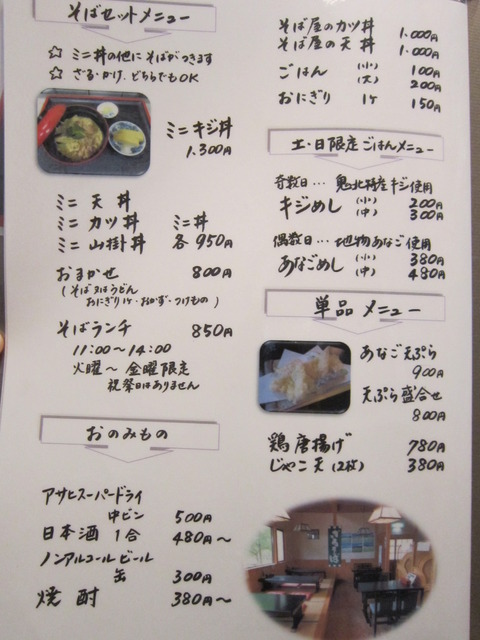 そばセットメニュー
☆ ミニ丼の他に そばがつきます
☆ ざる・かけ、どちらでもOK
ミニキジ丼
1.300円
ミニ 天 丼
ミニ カツ 丼 ミニ丼
ミニ 山掛丼 各 950円
おまかせ 800円
(そば又はうどん
おにぎり1ヶ・おかず・つけもの)
そばランチ 850円
11:00〜14:00
火曜〜金曜限定
祝祭日はありません
おのみもの
アサヒスーパードライ
中ビン 500円
日本酒 1合 480円〜
ノンアルコールビール
缶 300円
焼 酎 380円〜
そば屋のカツ丼 1.000円
そば屋の天丼 1.000円
ごはん (小) 100円
(大) 200円
おにぎり 1ヶ 150円
土・日限定ごはんメニュー
奇数日… 鬼北特産キジ使用
キジめし (小) 200円
(中) 300円
偶数日… 地物あなご使用
あなごめし (小) 380円
(中) 480円
単品メニュー
あなご天ぷら
900円
天ぷら盛合せ
800円
鶏唐揚げ 780円
じゃこ天(2枚) 380円